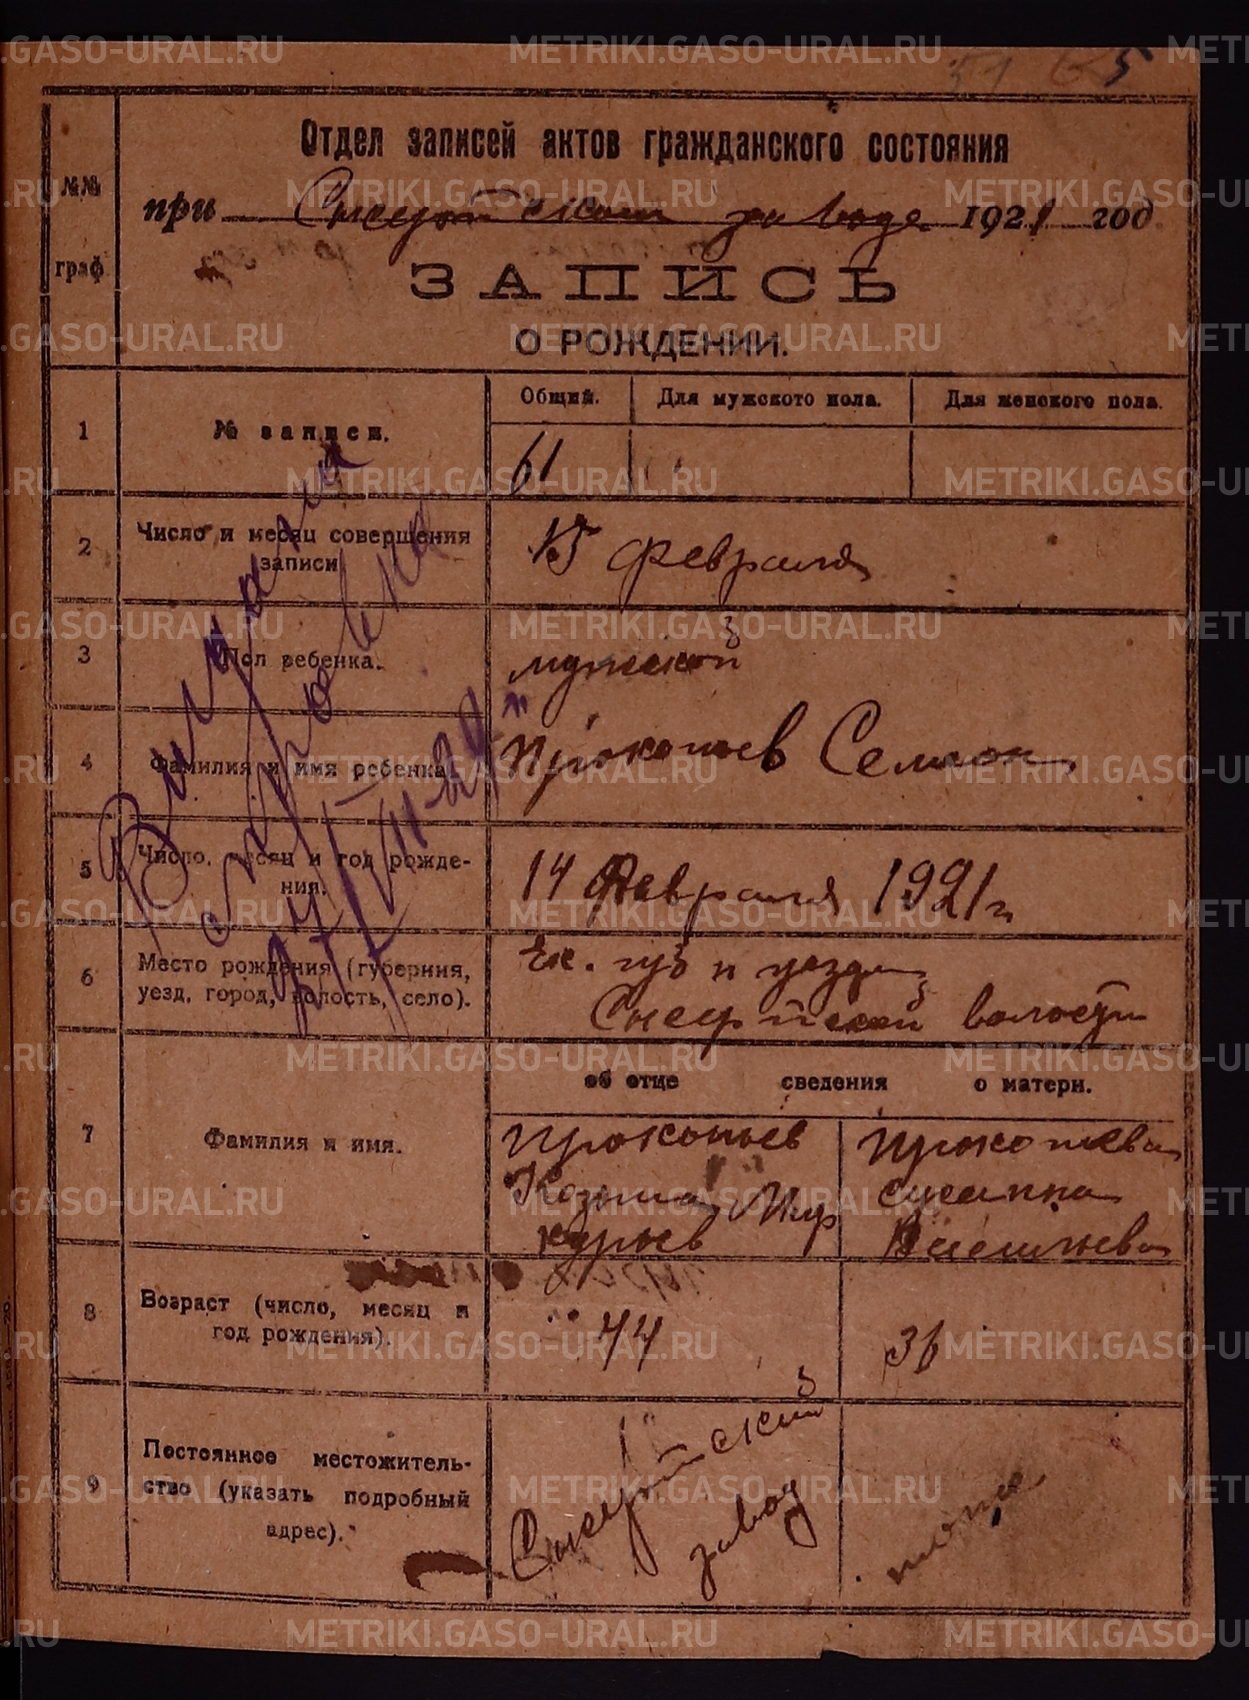 5
Отдел записей актов гражданского состояния
№№ граф
при Сысертском заводе 1921 год
ЗАПИСЬ
О РОЖДЕНИИ.
1
№ записи.
Общий. Для мужского пола. Для женского пола.
61
2
Число и месяц совершения
записи
15 февраля
3
Пол ребенка.
мужской
4
Фамилия и имя ребенка.
Прокопьев Семион
5
Число, месяц и год рожде-
ния.
14 Февраля 1921 г
6
Место рождения (губерния,
уезд, город, волость, село).
Ек. губ и уезда
Сысертской волости
об отце сведения о матери.
7
Фамилия и имя.
Прокопьев
Козьма Мер
курьев
Прокопьева
сусанна
8
Возраст (число, месяц и
год рождения).
44
36
9
Постоянное местожитель-
ство (указать подробный
адрес).
Сысертский
завод
тоже
Выдана
справка
METRIKI.GASO-URAL.RU